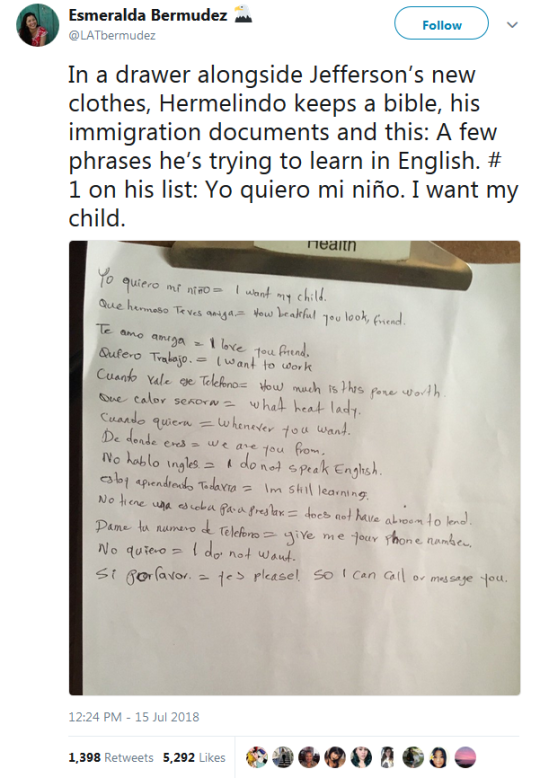 Esmeralda Bermudez
@LATbermudez
Follow
In a drawer alongside Jefferson's new
clothes, Hermelindo keeps a bible, his
immigration documents and this: A few
phrases he's trying to learn in English. #
1 on his list: Yo quiero mi niño. I want my
child.
Health
Yo quiero mi niño = I want my child.
Que hermoso Te ves amiga = How beakful you look, friend.
Te amo amiga = I love you friend.
Quiero Trabajo. = I want to work
Cuanto Vale ese Telefono = How much is this pone worth.
Que calor senora = what heat lady.
Cuando quiera = Whenever you want.
De donde eres = we are you from.
No hablo ingles = I do not speak English.
estoy aprendiendo Todavia = Im still learning.
No tiene una escoba para prestar = does not have abroom to lend.
Dame tu numero de Telefono = give me your phone namber.
No quiero = I do not want.
Si porfavor. = yes please! so I can call or message you.
12:24 PM - 15 Jul 2018
1,398 Retweets 5,292 Likes